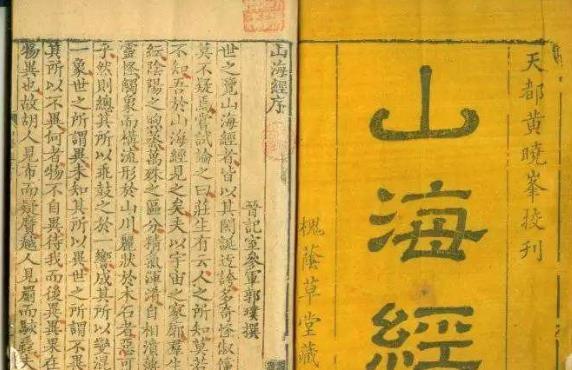 天都黄曉峯挍刊
山海經
槐蔭草堂藏
山海經序
晉記室參軍郭璞撰
世之覽山海經者皆以其閎誕迂誇多奇怪俶儻
莫不疑焉嘗試論之曰莊生有云人之所知莫若
不知吾於山海經見之矣夫以宇宙之寥廓羣生
紜陰陽之喣蒸萬殊之區分精氣渾淆自相濆
靈怪觸象而構流形於山川麗狀於木石者惡可
乎然則總其所以乖鼓之於一響成其所以變混
一象世之所謂異未知其所以異世之所謂不異
其所以不異何者物不自異待我而後異異果在
物異也故胡人見布而疑黂越人見罽而駭毳夫